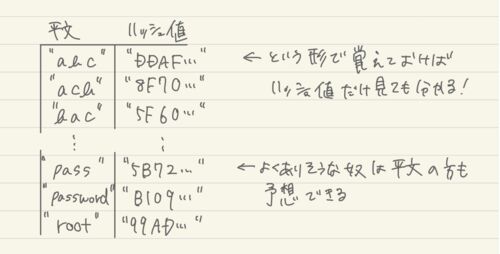 平文 ハッシュ値
"abc" "DDAF…" ← という形で覚えておけば
"acb" "8F70…" ハッシュ値だけ見ても分かる!
"bac" "5F60…"
⋮ ⋮
"pass" "5B72…" ← よくありそうな奴は平文の方も
"password" "B109…" 予想できる
"root" "99AD…"